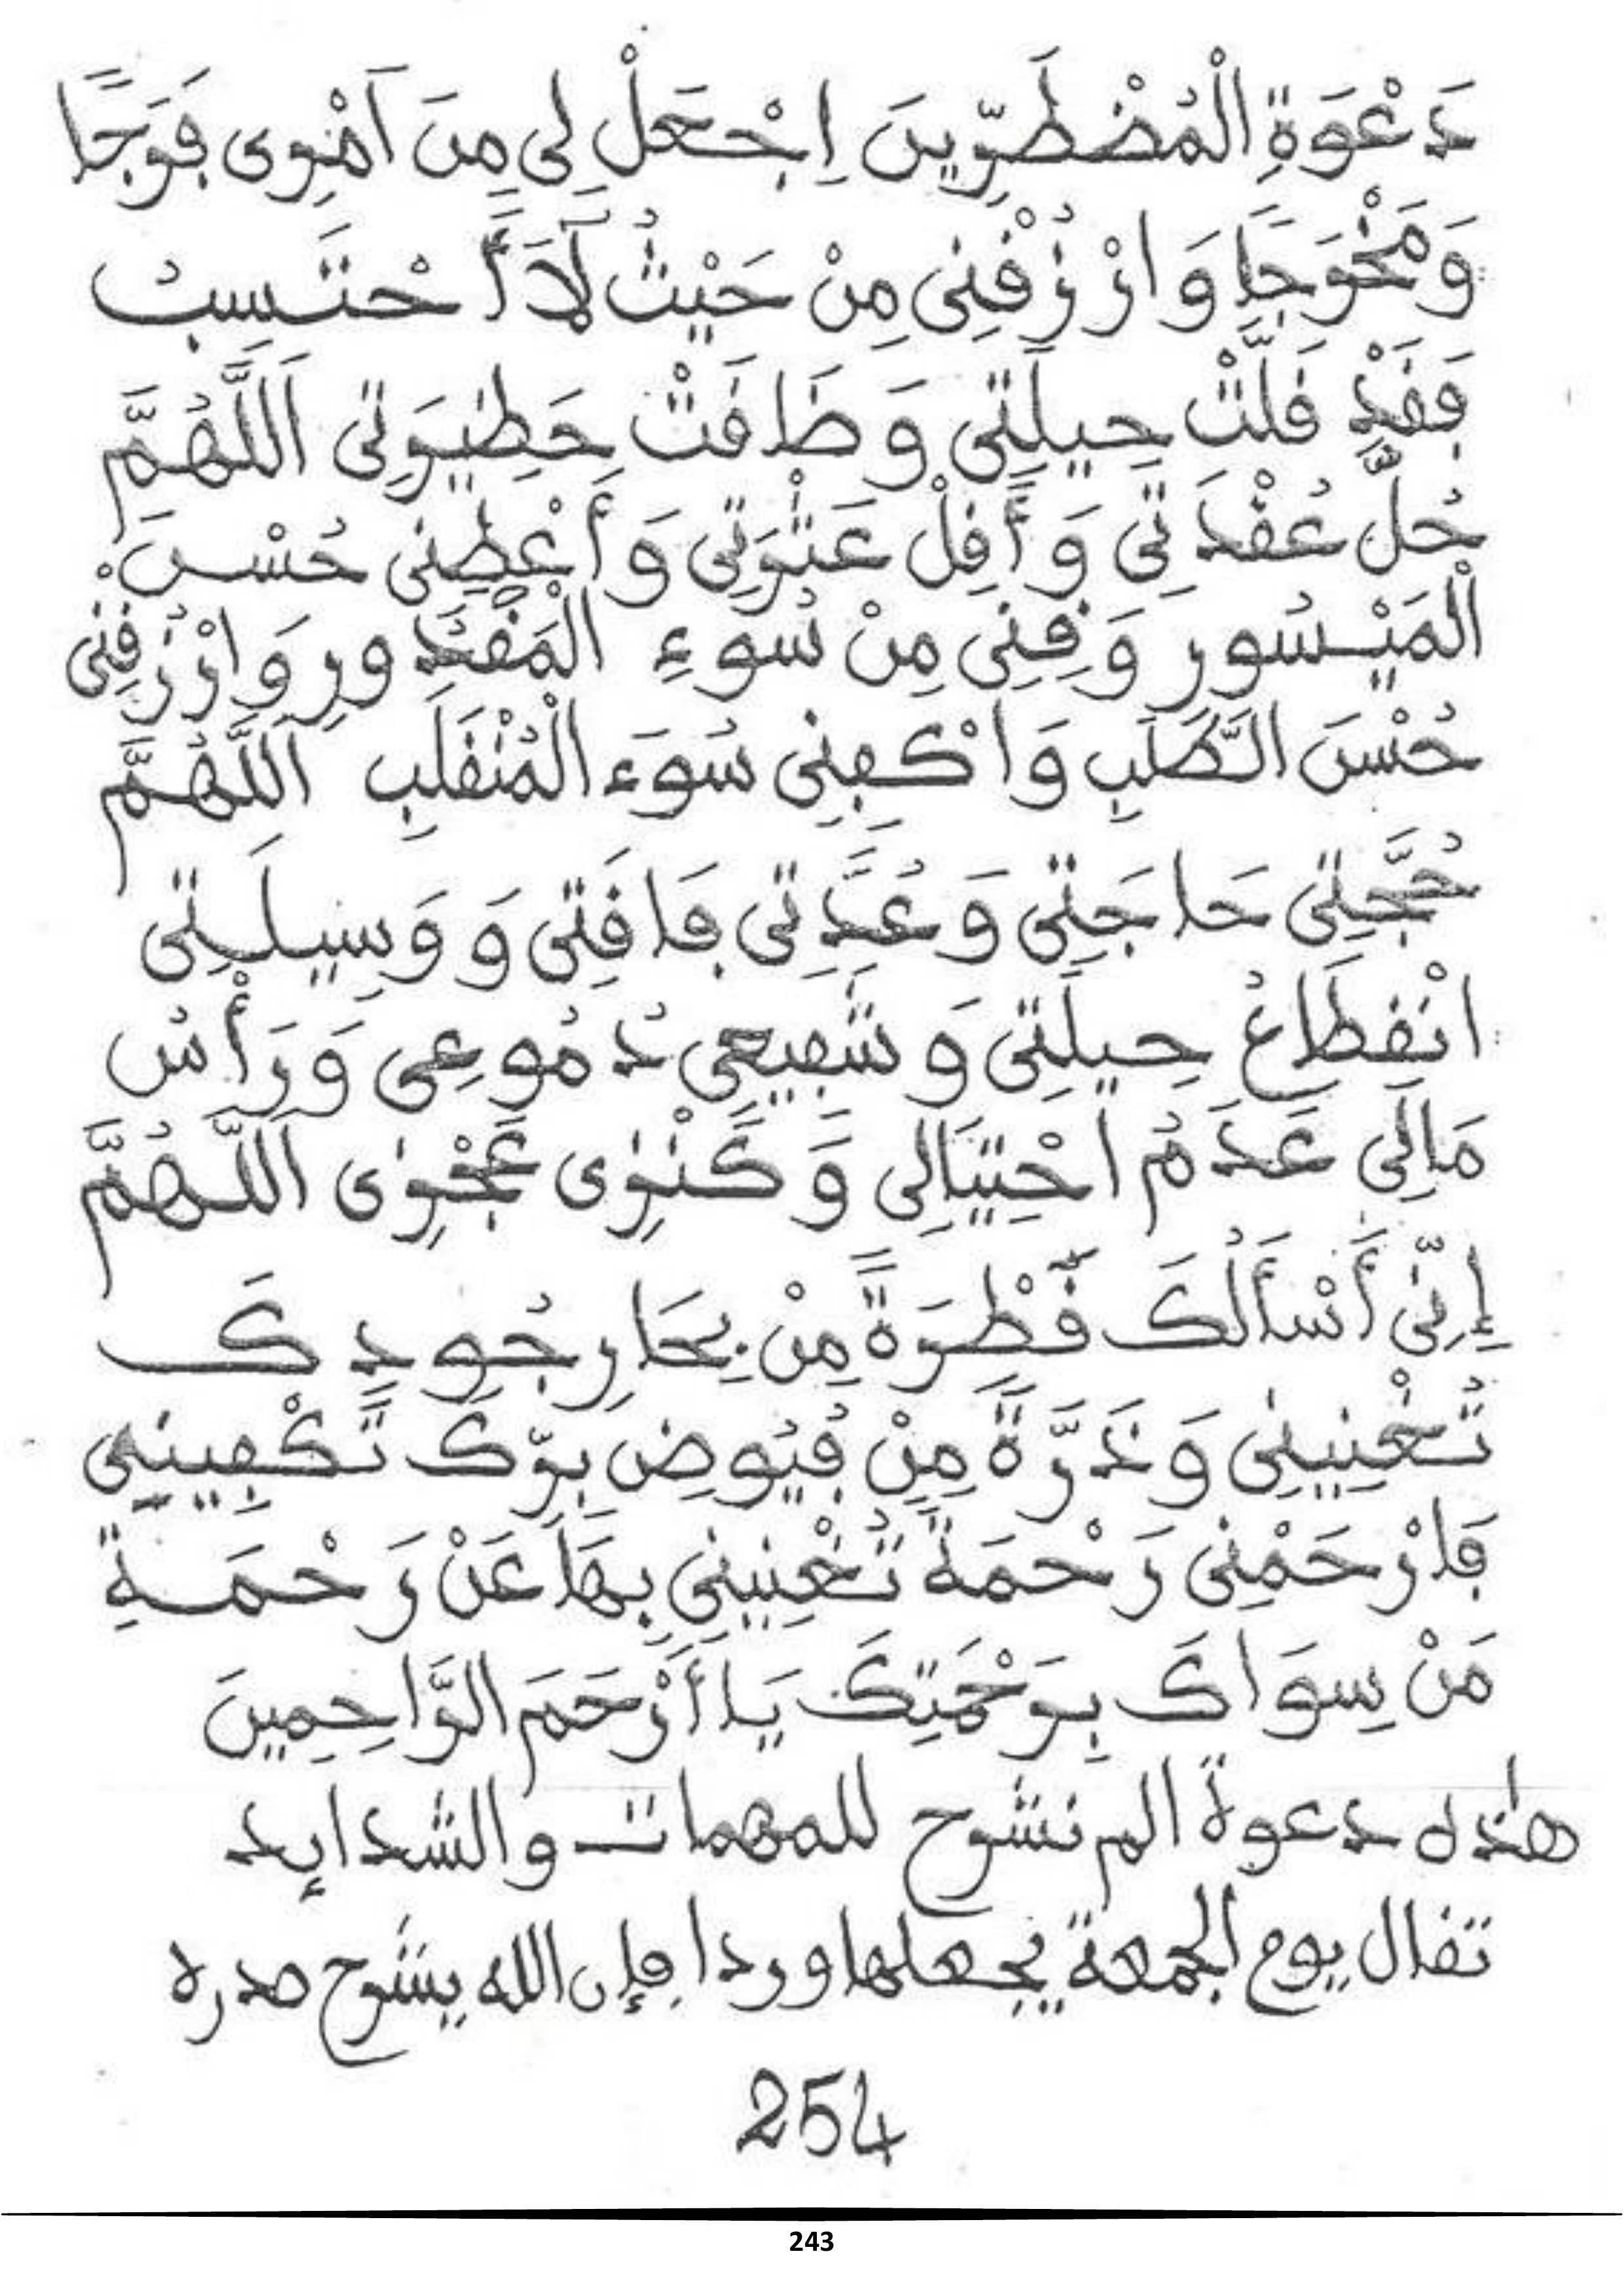 دَعْوَةِ الْمُضْطَرِّينَ اِجْعَلْ لِى مِنَ اَمْرِى فَرَجًا
وَمَخْرَجًا وَارْزُقْنِى مِنْ حَيْثُ لَا أَحْتَسِبُ
فَقَدْ قَلَّتْ حِيلَتِى وَضَاقَتْ حَطِيرَتِى اَللَّهُمَّ
حُلَّ عُقْدَتِى وَأَقِلْ عَثْرَتِى وَأَعْطِنِى حُسْنَ
الْمَيْسُورِ وَقِنِى مِنْ سُوءِ الْمَقْدُورِ وَارْزُقْنِى
حُسْنَ الطَّلَبِ وَاكْفِنِى سُوَءَ الْمُنْقَلَبِ اَللَّهُمَّ
حُجَّتِى حَاجَتِى وَعُدَّتِى فَاقَتِى وَوَسِيلَتِى
انْقِطَاعُ حِيلَتِى وَشَفِيعِى دُمُوعِى وَرَأْسُ
مَالِى عَدَمُ احْتِيَالِى وَكَنْزِى عَجْزِى اَللَّهُمَّ
إِنِّى أَسْأَلُكَ قَطْرَةً مِنْ بِحَارِ جُودِكَ
تُغْنِينِى وَذَرَّةً مِنْ فُيُوضِ بِرِّكَ تَكْفِينِى
فَارْحَمْنِى رَحْمَةً تُغْنِينِى بِهَا عَنْ رَحْمَةِ
مَنْ سِوَاكَ بِرَحْمَتِكَ يَا أَرْحَمَ الرَّاحِمِينَ
هاذه دعوة الم نشرح للمهمات والشدايد
تقال يوم الجمعة يجعلها وردا فإن الله يشرح صدره
254
243